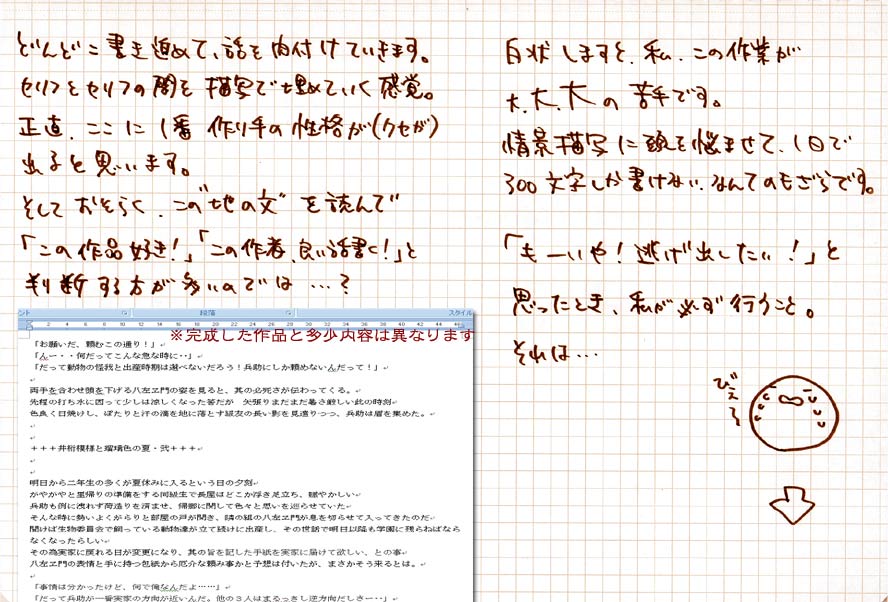 どんどこ書き進めて、話を肉付けていきます。
セリフとセリフの間を描写で埋めていく感覚。
正直、ここに1番作り手の性格が(クセが)
出ると思います。
そしておそらく、この"地の文"を読んで
「この作品好き!」「この作者、良い話書く!」と
判断する方が多いのでは…?
ント
段落
スタイル
2 4 6 8 10 12 14 16 18 20 22 24 26 28 30 32 34 36 38 40 42 44
※完成した作品と多少内容は異なります
「お願いだ、頼むこの通り!」
「んー・・何だってこんな急な時に・・」
「だって動物の怪我と出産時期は選べないだろう!兵助にしか頼めないんだって!」
両手を合わせ頭を下げる八左ヱ門の姿を見ると、其の必死さが伝わってくる。
先程の打ち水に因って少しは涼しくなった筈だが　矢張りまだまだ暑さ厳しい此の時刻
色良く日焼けし、ぽたりと汗の滴を地に落とす級友の長い影を見遣りつつ、兵助は眉を集めた。
+++井桁模様と瑠璃色の夏・弐+++
明日から二年生の多くが夏休みに入るという日の夕刻
がやがやと里帰りの準備をする同級生で長屋はどこか浮き足立ち、賑やかしい
兵助も例に洩れず荷造りを済ませ、帰郷に関して色々と思いを巡らせていた
そんな時に勢いよくがらりと部屋の戸が開き、隣の組の八左ヱ門が息を切らせて入ってきたのだ
聞けば生物委員会で飼っている動物達が立て続けに出産し、その世話で明日以降も学園に残らねばなら
なくなったらしい
その為実家に戻れる日が変更になり、其の旨を記した手紙を実家に届けて欲しい、との事
八左ヱ門の表情と手に持つ包紙から厄介な頼み事かと予想は付いたが、まさかそう来るとは。
「事情は分かったけど、何で俺なんだよ……」
「だって兵助が一番実家の方向が近いんだ。他の3人はまるっきし逆方向だしさー・・」
白状しますと、私、この作業が
大、大、大の苦手です。
情景描写に頭を悩ませて、1日で
300文字しか書けない、なんてのもざらです。
「もーいや!逃げ出したい!」と
思ったとき、私が必ず行うこと。
それは…
びぇぇ